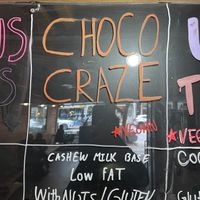 CHOCO
CRAZE
★VEGAN
CASHEW MILK BASE
LOW FAT
WITH NUTS/GLUTEN
US
S
U
T
★VEG
CO